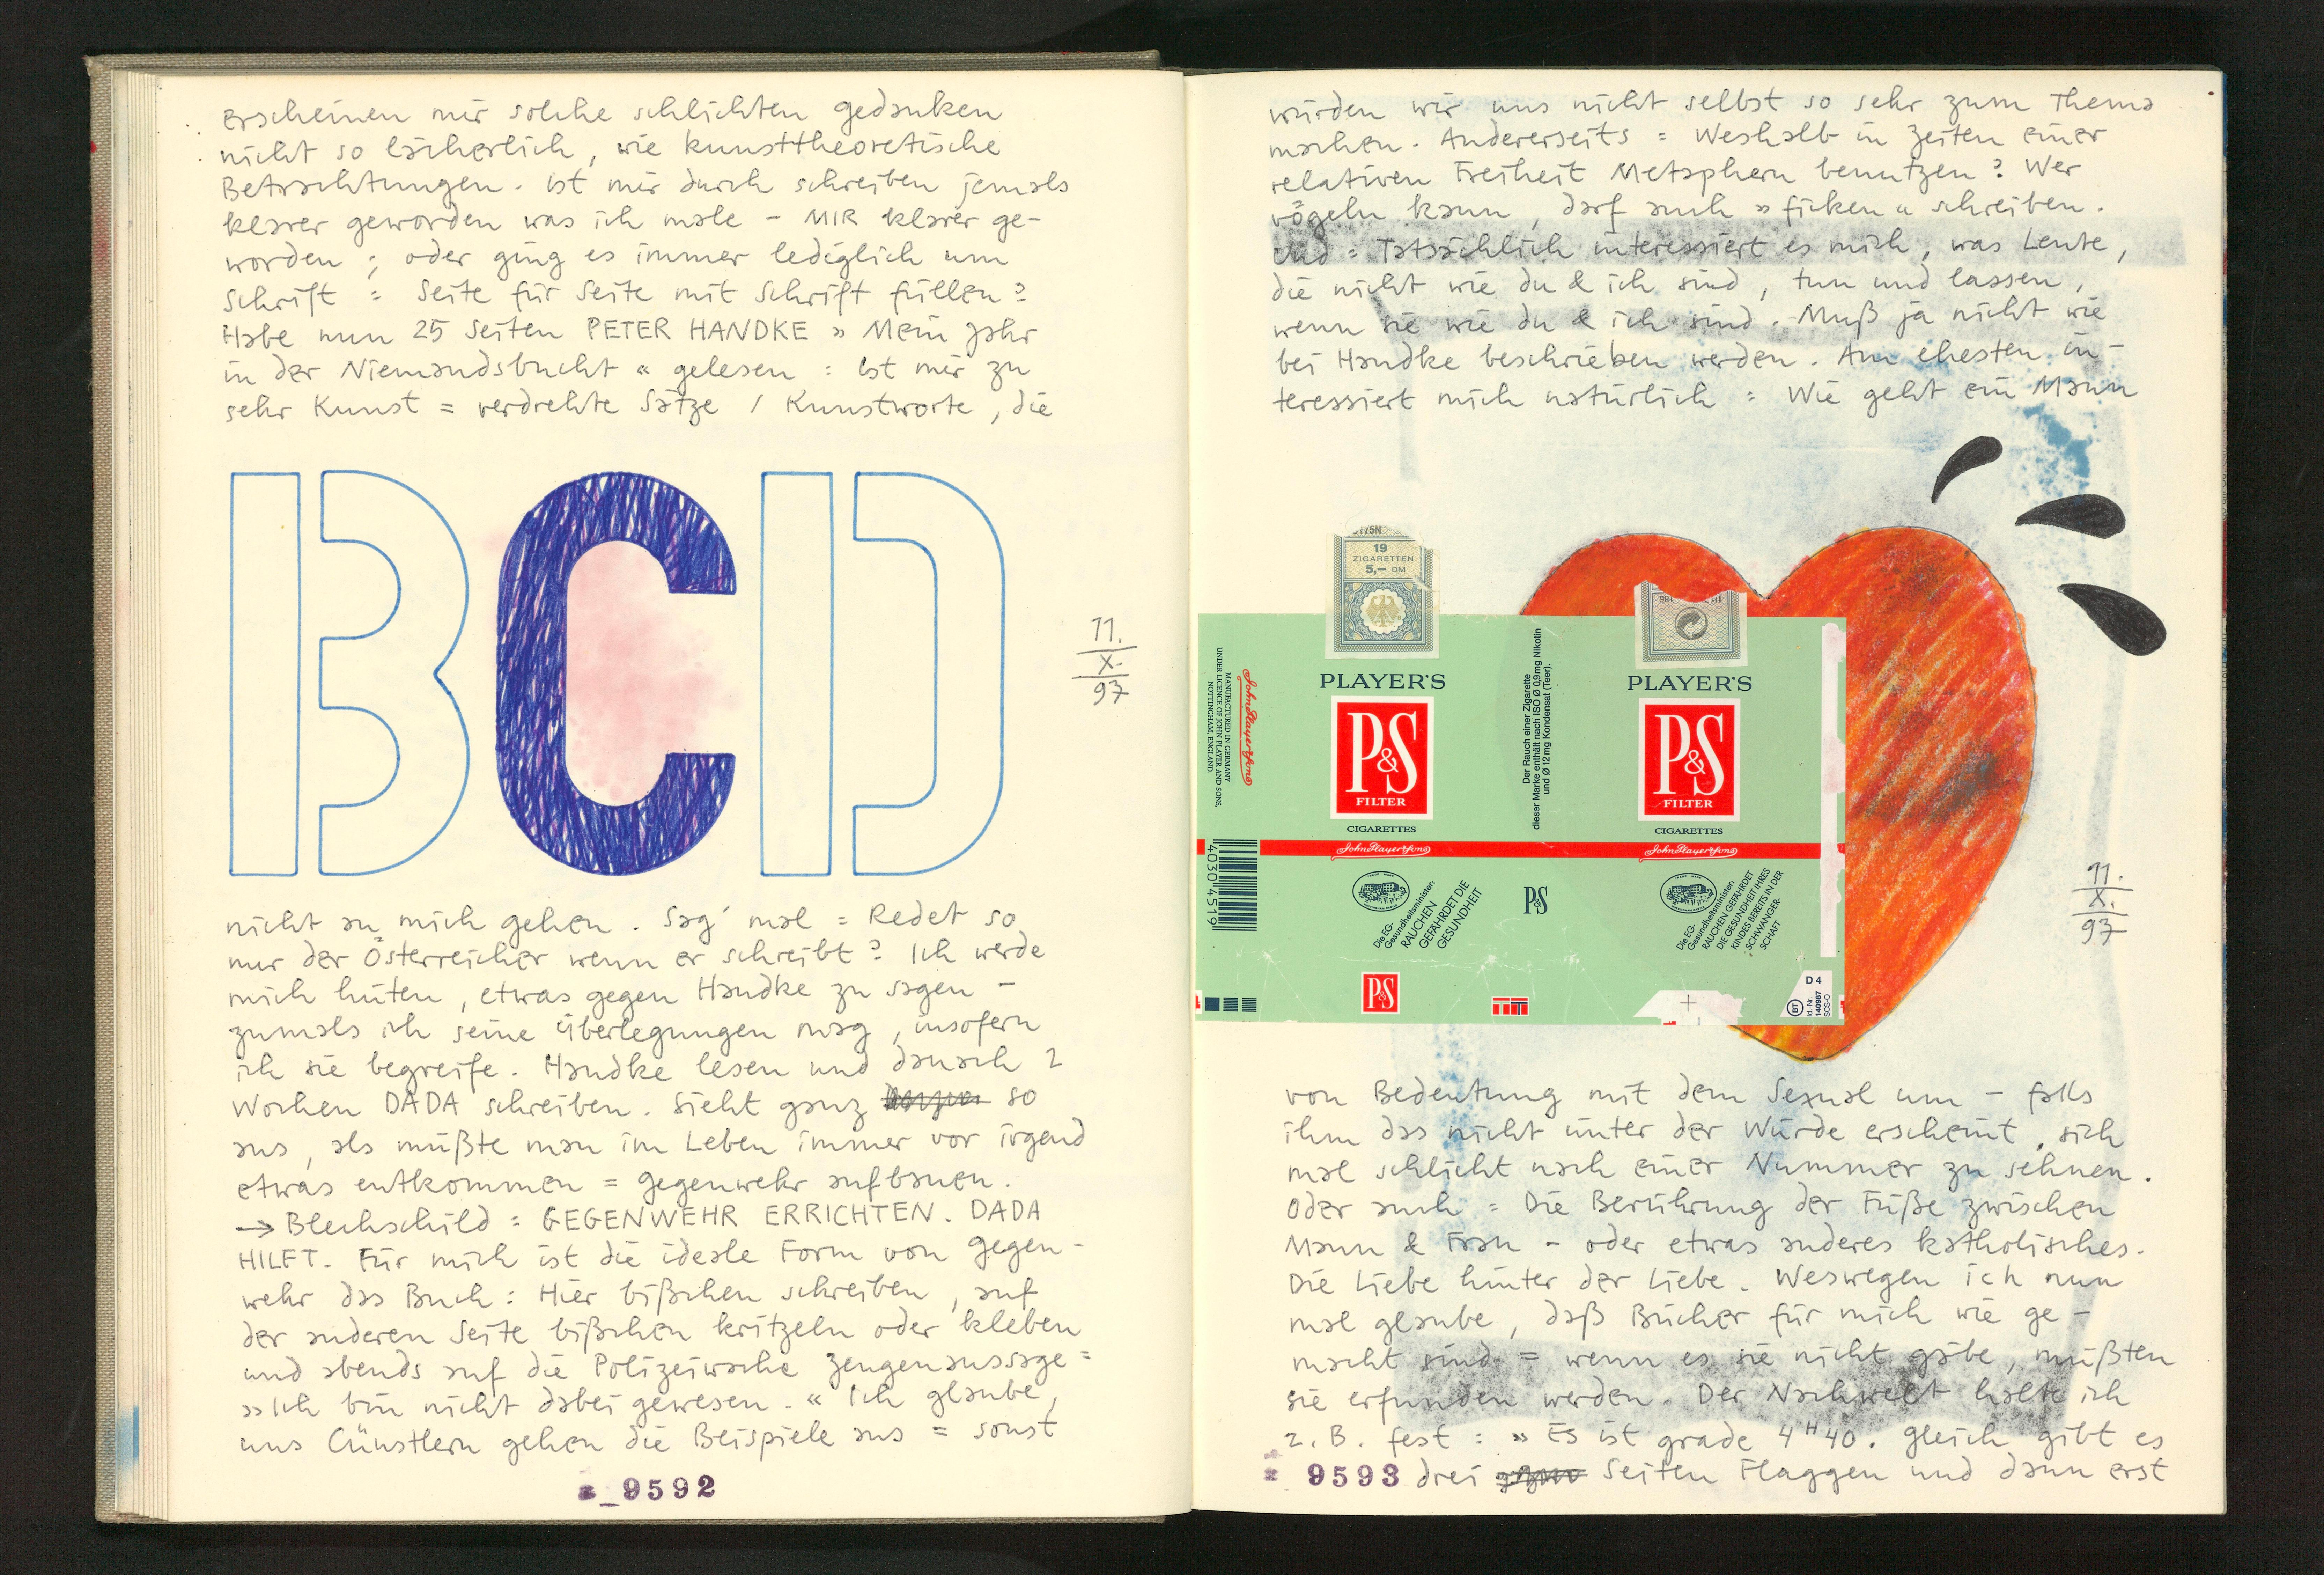 erscheinen mir solche schlichten Gedanken
nicht so lächerlich, wie kunsttheoretische
Betrachtungen. Ist mir durch schreiben jemals
klarer geworden was ich male – MIR klarer ge-
worden ; oder ging es immer lediglich um
Schrift = Seite für Seite mit Schrift füllen ?
Habe nun 25 Seiten PETER HANDKE » Mein Jahr
in der Niemandsbucht « gelesen : Ist mir zu
sehr Kunst = verdrehte Sätze / Kunstworte, die
BCD
11.
X.
97
nicht an mich gehen. Sag' mal = Redet so
nur der Österreicher wenn er schreibt ? Ich werde
mich hüten, etwas gegen Handke zu sagen –
zumals ich seine Überlegungen mag, insofern
ich sie begreife. Handke lesen und danach 2
Wochen DADA schreiben. Sieht ganz so
aus, als müßte man im Leben immer vor irgend
etwas entkommen = Gegenwehr aufbauen.
→ Blechschild : GEGENWEHR ERRICHTEN. DADA
HILFT. Für mich ist die ideale Form von Gegen-
wehr das Buch : Hier bißchen schreiben, auf
der anderen Seite bißchen kritzeln oder kleben
und abends auf die Polizeiwache Zeugenaussage =
» Ich bin nicht dabei gewesen. « Ich glaube,
uns Cünstlern gehen die Beispiele aus = sonst
9592
würden wir uns nicht selbst so sehr zum Thema
machen. Andererseits = Weshalb in Zeiten einer
relativen Freiheit Metaphern benutzen ? Wer
vögeln kann, darf auch » ficken « schreiben.
Und = Tatsächlich interessiert es mich, was Leute,
die nicht wie du & ich sind, tun und lassen,
wenn sie wie du & ich sind. Muß ja nicht wie
bei Handke beschrieben werden. Am ehesten in-
teressiert mich natürlich : Wie geht ein Mann
19
ZIGARETTEN
5,— DM
PLAYER'S
P&S
FILTER
CIGARETTES
John Player & Sons
MANUFACTURED IN GERMANY
UNDER LICENCE OF JOHN PLAYER AND SONS,
NOTTINGHAM, ENGLAND.
John Player & Sons
4030 4519
Die EG-
Gesundheitsminister:
RAUCHEN
GEFÄHRDET DIE
GESUNDHEIT
P&S
Der Rauch einer Zigarette
dieser Marke enthält nach ISO Ø 0,9 mg Nikotin
und Ø 12 mg Kondensat (Teer).
P&S
PLAYER'S
P&S
FILTER
CIGARETTES
John Player & Sons
Die EG-
Gesundheitsminister:
RAUCHEN GEFÄHRDET
DIE GESUNDHEIT IHRES
KINDES BEREITS IN DER
SCHWANGER-
SCHAFT
D 4
BT
Id.-Nr.
140987
SCS-O
11.
X.
97
von Bedeutung mit dem Sexual um – falls
ihm das nicht unter der Würde erscheint, sich
mal schlicht nach einer Nummer zu sehnen.
Oder auch = Die Berührung der Füße zwischen
Mann & Frau – oder etwas anderes katholisches.
Die Liebe hinter der Liebe. Weswegen ich nun
mal glaube, daß Bücher für mich wie ge-
macht sind = wenn es sie nicht gäbe, müßten
sie erfunden werden. Der Nachwelt halte ich
z. B. fest : » Es ist grade 4 H 40. Gleich gibt es
9593 drei Seiten Flaggen und dann erst